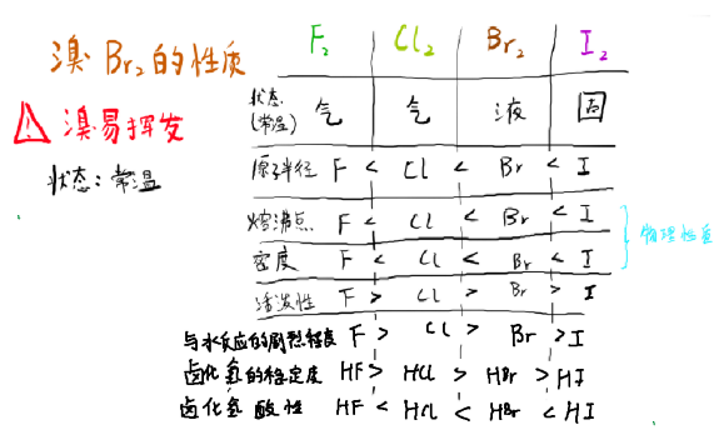 溴 Br₂的性质
⚠ 溴易挥发
状态：常温
F₂ Cl₂ Br₂ I₂
状态(常温) 气 气 液 固
原子半径 F < Cl < Br < I
熔沸点 F < Cl < Br < I
密度 F < Cl < Br < I
物理性质
活泼性 F > Cl > Br > I
与水反应的剧烈程度 F > Cl > Br > I
卤化氢的稳定度 HF > HCl > HBr > HI
卤化氢 酸性 HF < HCl < HBr < HI